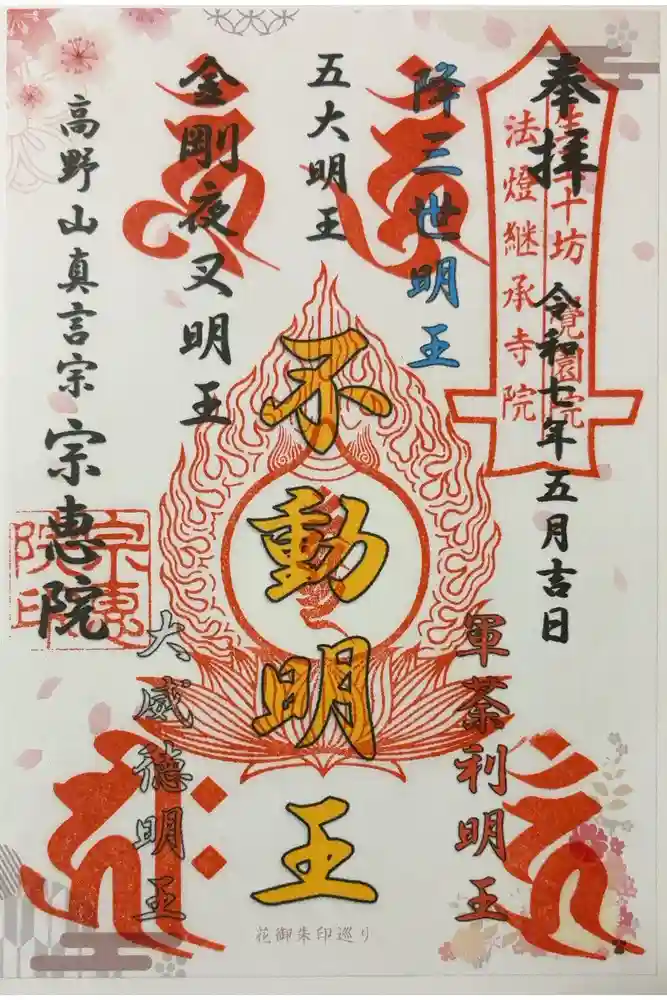 奉拝
法燈継承寺院
十坊
覚園院
令和七年五月吉日
降三世明王
軍荼利明王
五大明王
不動明王
金剛夜叉明王
大威徳明王
高野山真言宗
宗恵院
宗恵
院印
花御朱印巡り